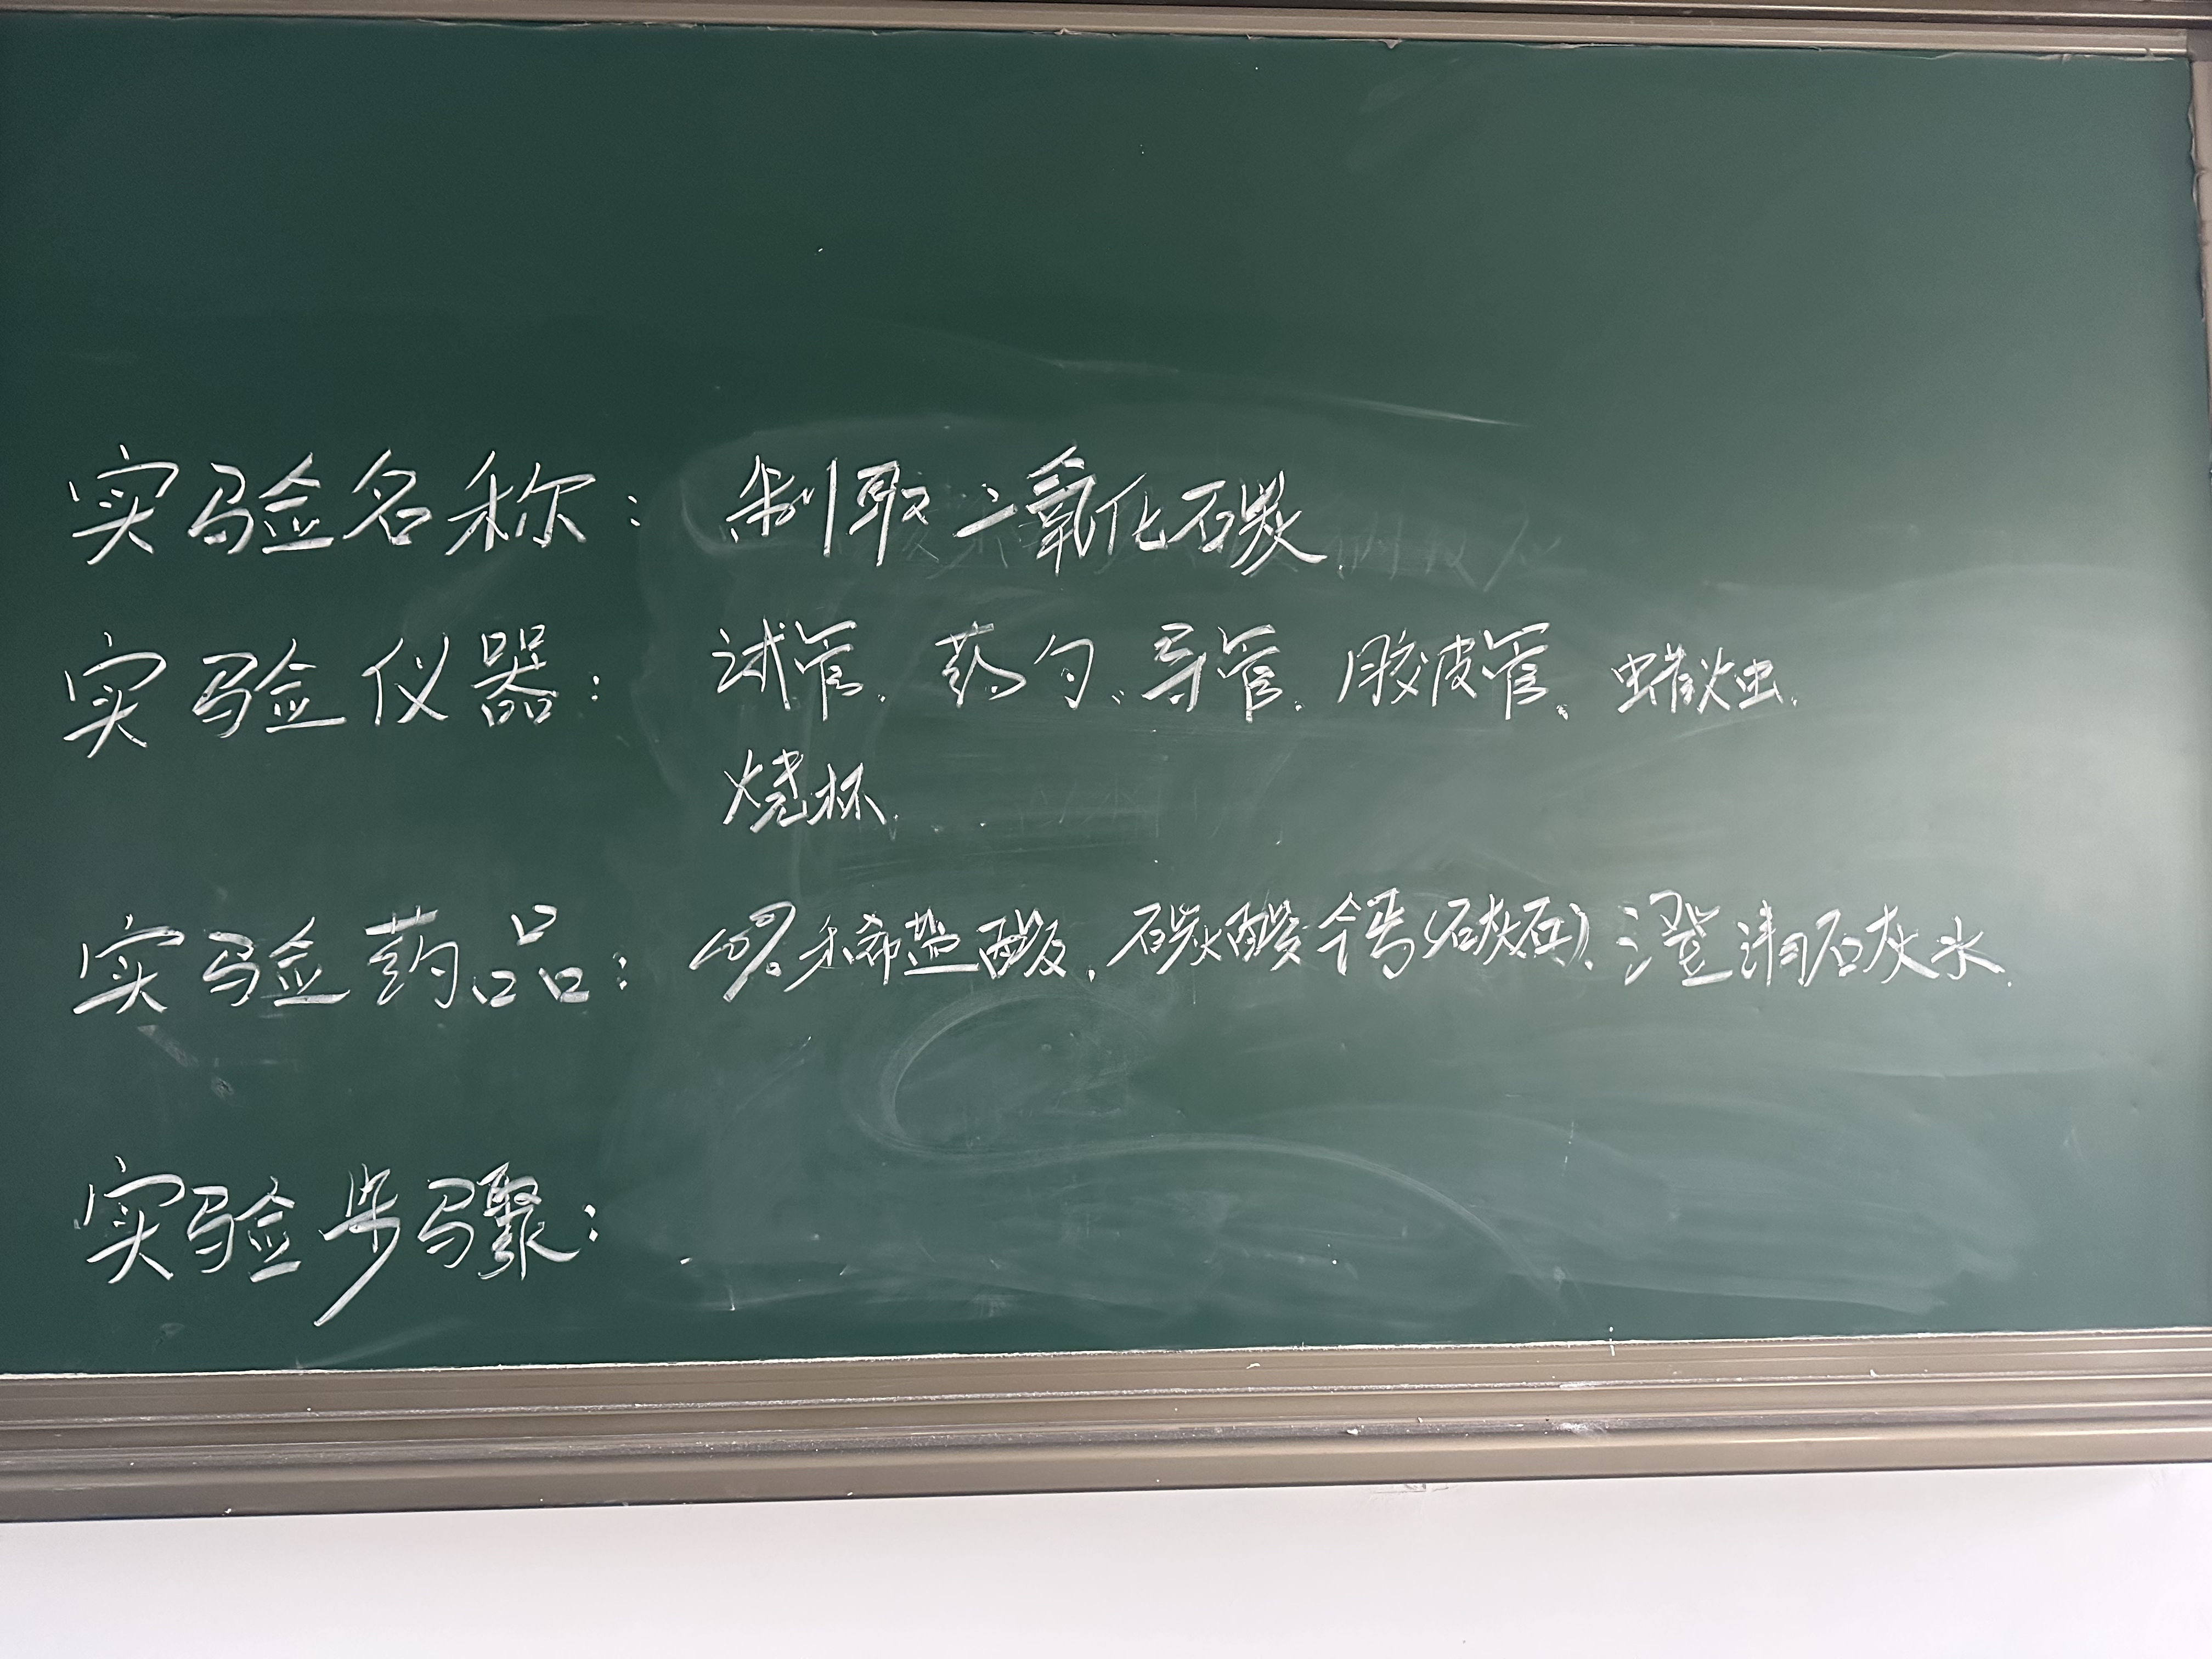 实验名称：制取二氧化碳
实验仪器：试管、药勺、导管、胶皮管、蜡烛、
烧杯、
实验药品：稀盐酸、碳酸钙（石灰石）、澄清石灰水、
实验步骤：